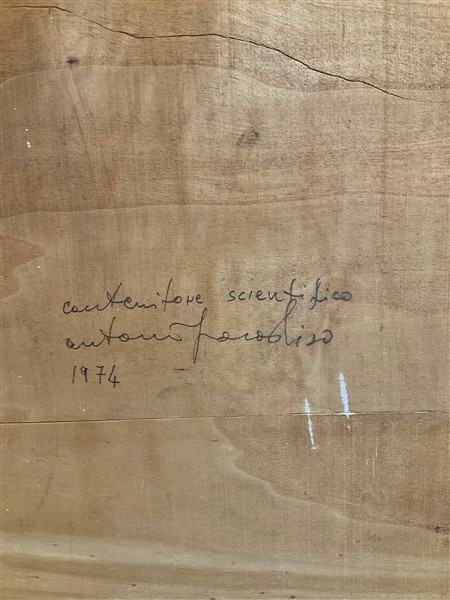 contenitore scientifico
antonio paradiso
1974